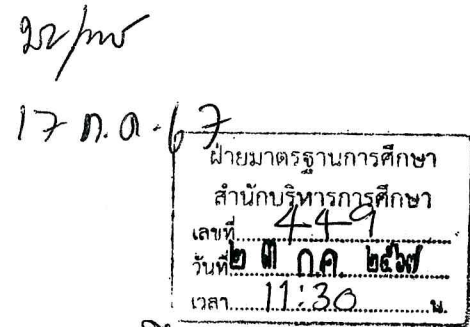 17 ก.ค. 67
ฝ่ายมาตรฐานการศึกษา
สำนักบริหารการศึกษา
เลขที่ 449
วันที่ ๒ ๓ ก.ค. ๒๕๖๗
เวลา 11:30 น.